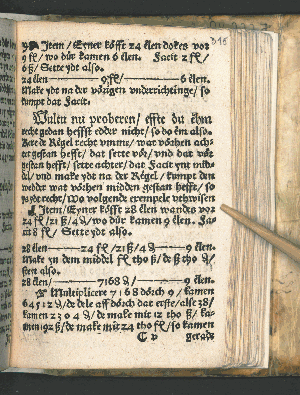 9 Item / Eyner köfft 24 elen dokes vor
9 fl / wo dür kamen 6 elen. Facit 2 fl /
6 ß / Sette ydt also.
24 elen — 9 fl / — 6 elen.
Make ydt na der vörigen vnderrichtinge / so
kumpt dat Facit.
Wultu nu proberen / effte du ehm
recht gedan heffst edder nicht / so do em also.
Kere de Regel recht vmme / wat vörhen ach-
ter gestan hefft / dat sette vör / vnd dat vör
gestan hefft / sette achter / dat Facit ynt mid-
del / vnd make ydt na der Regel / kumpt den
wedder wat vörhen midden gestan hefft / so
ys ydt recht / Wo volgende exempele vthwisen
Item / Eyner köfft 28 elen wandes vor
24 fl / 21 ß / 4 ₰ / wo dür kamen 9 elen. Fa-
cit 8 fl / Sette ydt also.
28 elen — 24 fl / 21 ß / 4 ₰ — 9 elen.
Make yn dem middel fl tho ß / de ß tho ₰ /
sten also.
28 elen / — 7168 ₰ / — 9 elen.
Multiplicere 7168 dörch 9 / kamen
64512 ₰ / de dele aff dörch dat erste / alse 28 /
kamen 2304 ₰ / de make mit 12 tho ß / ka-
men 192 ß / de make mit 24 tho fl / so kamen
C v gerade